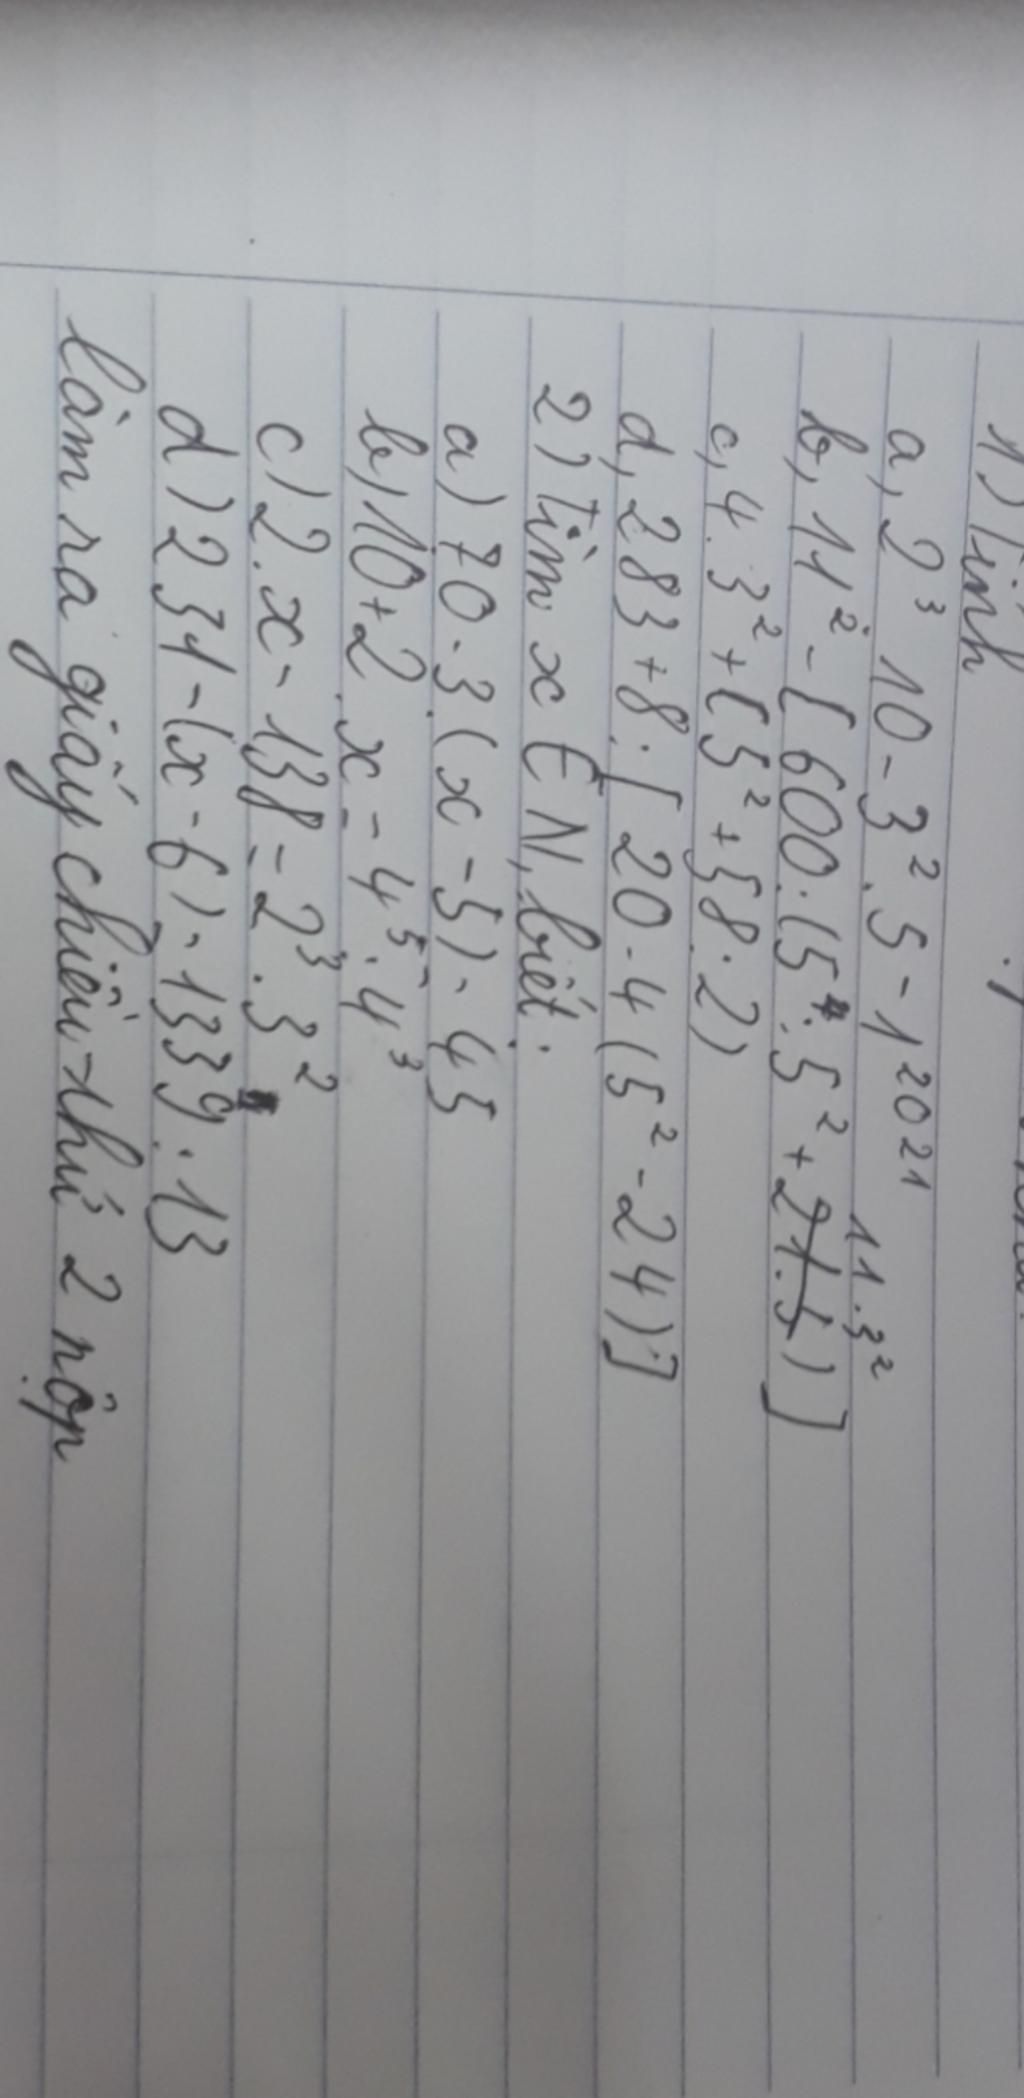 1) Tính
a, 2³ 10 - 3² . 5 - 1²⁰²¹
b, 11² - [ 600 : (5⁴ : 5² + 11.3² ) ]
c, 4 . 3² + (5² + 58 : 2)
d, 283 + 8 : [ 20 - 4 (5² - 24) ]
2) Tìm x ∈ N, biết :
a) 70 - 3 (x - 5) = 45
b, 10 + 2 . x = 4⁵ : 4³
c) 2 . x - 138 = 2³ . 3²
d) 231 - (x - 6) = 1339 : 13
làm ra giấy chiều thứ 2 nộp